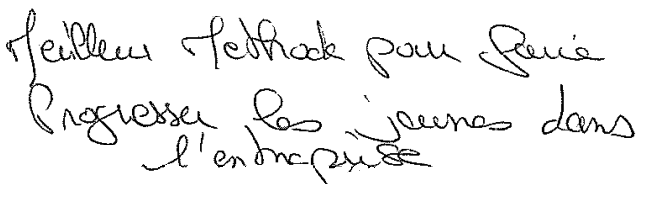 Meilleur Methode pour faire
Progresser les jeunes dans
l'entreprise